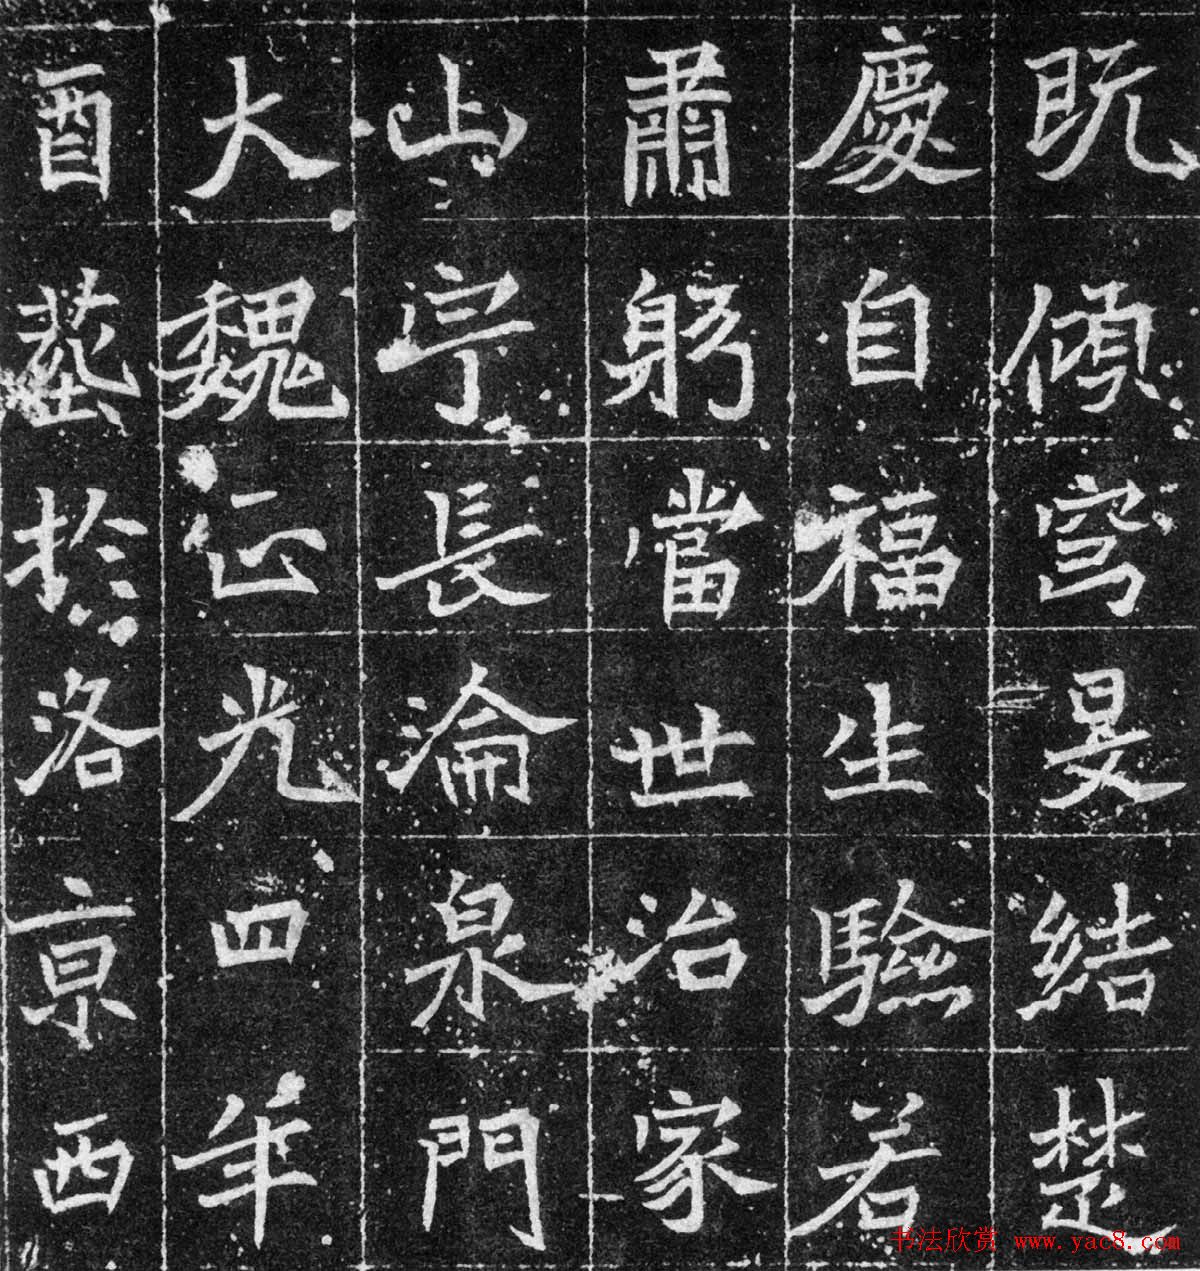 既傾穹旻結楚
慶自福生驗若
肅躬當世治家
山宇長淪泉門
大魏正光四年
酉塟於洛京西
书法欣赏 www.yac8.com